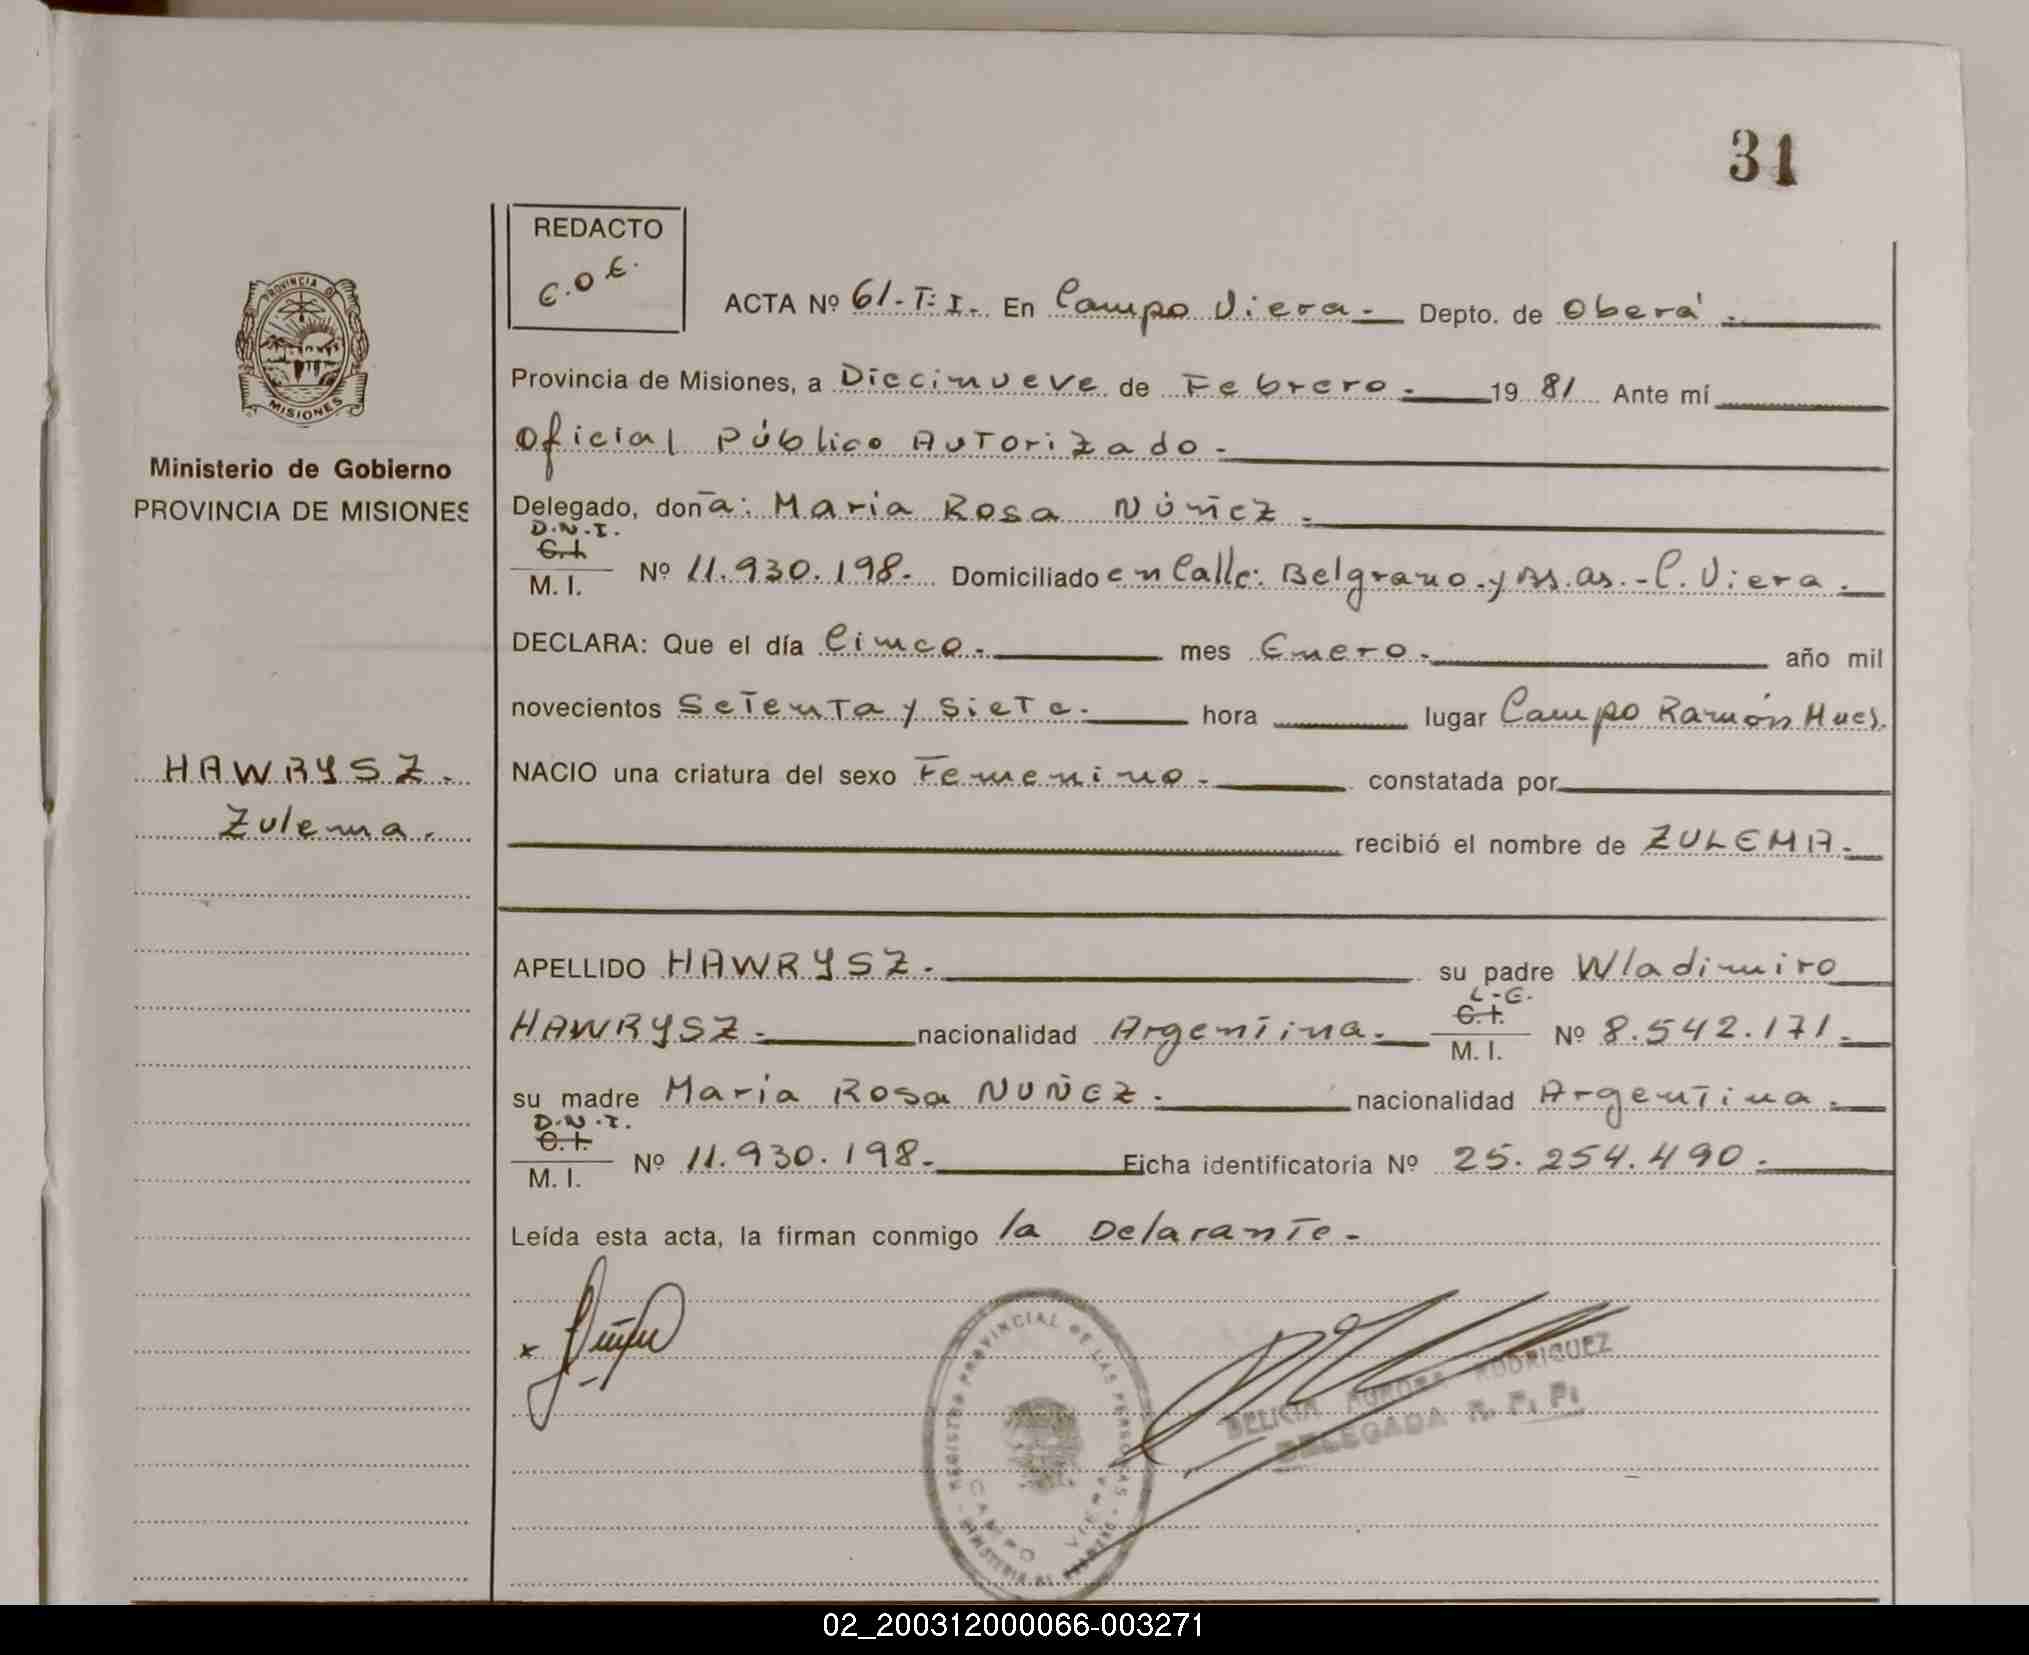 31
REDACTO
C.O.E.
PROVINCIA DE
MISIONES
Ministerio de Gobierno
PROVINCIA DE MISIONES
ACTA Nº 61.-T:I.- En Campo Viera.- Depto. de Oberá.-
Provincia de Misiones, a Diecinueve de Febrero.- 19 81 Ante mí
Oficial Público Autorizado.-
Delegado, doña: Maria Rosa Núñez.-
D.N.I.
C.I.
M. I.
Nº 11.930.198.- Domiciliado en Calle: Belgrano y Bs.as.-C.Viera.-
DECLARA: Que el día Cinco.- mes Enero.- año mil
novecientos Setenta y Siete.- hora lugar Campo Ramón Mnes.
HAWRYSZ.
Zulema.
NACIO una criatura del sexo Femenino.- constatada por
recibió el nombre de ZULEMA.-
APELLIDO HAWRYSZ.- su padre Wladimiro
HAWRYSZ.- nacionalidad Argentina.-
L.E.
C.I.
M. I.
Nº 8.542.171.-
su madre Maria Rosa NUÑEZ.- nacionalidad Argentina.-
D.N.I.
C.I.
M. I.
Nº 11.930.198.- Ficha identificatoria Nº 25.254.490.-
Leída esta acta, la firman conmigo la Delarante.-
x
REGISTRO PROVINCIAL DE LAS PERSONAS
CAMPO VIERA
AURORA RODRIGUEZ
DELEGADA R. P. P.
02_200312000066-003271